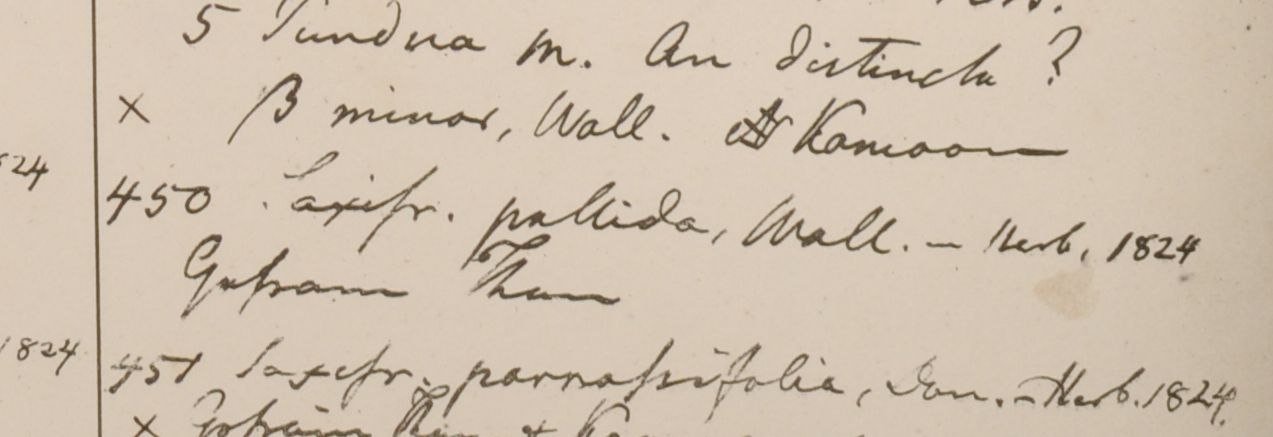 5 Tundua m. An distincta?
× β minor, Wall. Kamaon
24
450 Saxifr. pallida, Wall. – Herb. 1824
Gosain Than
1824
451 Saxifr. parnassifolia, Don. – Herb. 1824.
× Gosain Than &